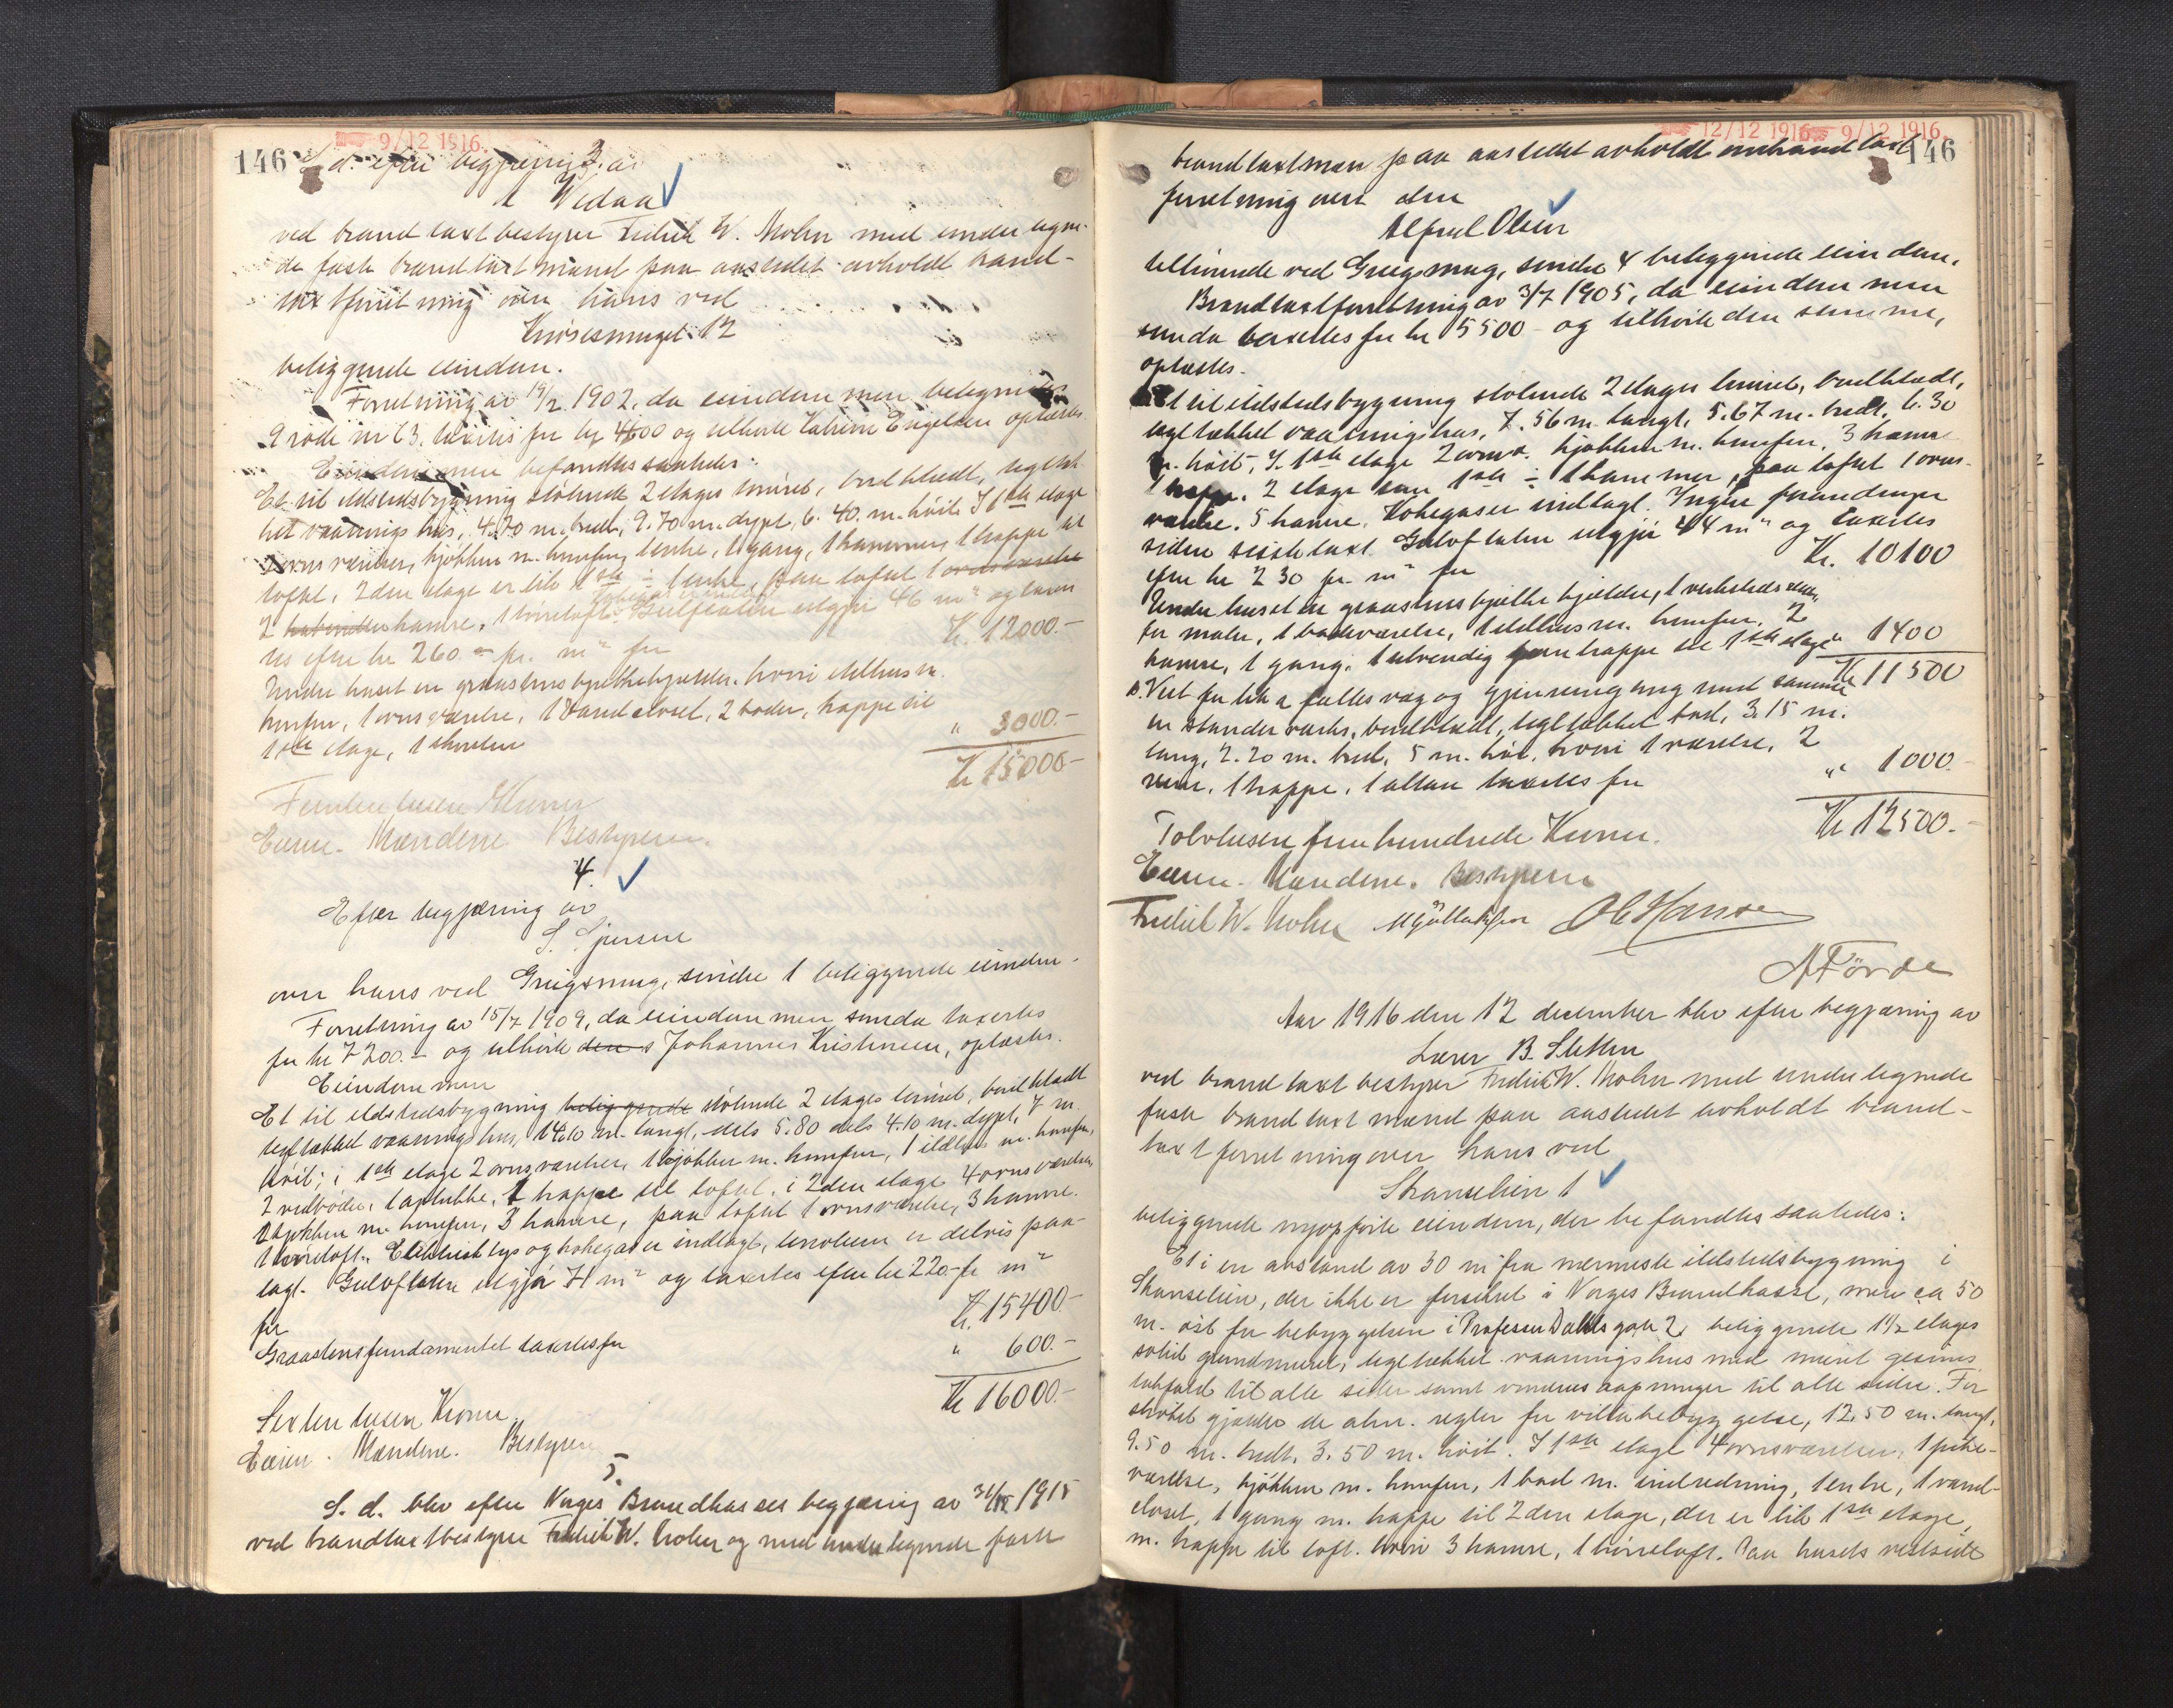 9/12 1916.
146
S. d. efter begjæring av
3.
Vedaa
ved brandtaxtbestyrer Fredrik W. Mohn med undertegne-
de faste brandtaxtmænd paa aastedet avholdt brand-
taxtforretning over hans ved
Krøsesmuget 12
beliggende eiendom.
Forretning av 19/2 1902, da eiendommen betegnedes
9 rode nr 63, taxertes for kr 4600 og tilhørte Katrine Engelsen oplæstes
Eiendommen befandtes saaledes:
Et til ildstedsbygning stötende 2 etages tömret, bordklædt, tegltæk-
ket vaaningshus, 4.70 m. bredt, 9.70 m. dypt, 6.40 m. höit. I 1ste etage
2 ovnsværelser, kjökken m. komfur, 1 entre, 1 gang, 1 kammer, 1 trappe til
loftet, 2den etage er lik 1ste ÷ 1 entre, paa loftet 1 ovnsværelse
2 kamre, 1 törreloft. Gulvflaten utgjör 46 m² og taxer
tes efter kr 260.- pr. m² for
Kr. 12000.-
Under huset en graastens hjelkekjælder, hvori ildhus m.
komfur, 1 ovnsværelse, 1 vandcloset, 2 boder, trappe til
1ste etage, 1 skorsten
" 3000.-
Kr 15000-
Femten tusen Kroner
Eieren. Mændene Bestyreren.
4.
Efter begjæring av
S. Sjursen
over hans ved Griegsmug, søndre 1 beliggende eiendom.
Forretning av 15/7 1909, da eiendommen senda taxertes
for kr 7200.- og tilhørte den s Johannes Kristensen, oplæstes.
Eiendommen
Et til ildstedsbygning beliggende stötende 2 etages tömret, bordklædt
tegltækket vaaningshus, 14.10 m. langt, dels 5.80 dels 4.10 m. dypt, 7 m.
höit; i 1ste etage 2 ovnsværelser, 1 kjökken m. komfur, 1 ildhus m. komfur,
2 vedboder, 1 aplukke, 1 trappe til loftet. i 2den etage 4 ovnsværelser,
1 kjökken m. komfur, 3 kamre, paa loftet 1 ovnsværelse, 3 kamre.
1 törreloft. Elektrisk lys og kokegas er indlagt, linoleum er delvis paa-
lagt. Gulvflaten utgjör 71 m² og taxertes efter kr 220.- pr m²
for
Kr. 15400.-
Graastensfundamentet taxertes for
" 600.-
Kr 16000.-
Sexten tusen Kroner.
Eieren. Mændene. Bestyreren
5.
S. d. blev efter Norges Brandkasses begjæring av 31/12 1915
ved brandtaxtbestyrer Fredrik W. Mohn og med undertegnede faste
12/12 1916 9/12 1916.
146
brandtaxtmæn paa aastedet avholdt ombrandtaxt
forretning over den
Alfred Olsen
tilhörende ved Griegsmug, søndre 4 beliggende eiendom.
Brandtaxtforretning av 3/7 1905, da eiendommen
senda taxertes for kr 5500- og tilhörte den samme,
oplæstes.
Et til ildstedsbygning stötende 2 etages tömret, bordklædt,
tegltækket vaaningshus, 7.56 m. langt, 5.67 m. bredt, 6.30
m. höit, I 1ste etage 2 ovnsv. kjökken m. komfur. 3 kamre
1 trappe. 2 etage som 1ste ÷ 1 kammer, paa loftet 1 ovns-
værelse. 5 kamre. Kokegas er indlagt. Ingen forandringer
siden sidste taxt. Gulvflaten utgjör 44 m² og taxertes
efter kr 230 pr. m² for
Kr. 10100
Under huset er graastens hjelke kjælder, 1 verksteds
for maler, 1 badeværelse, 1 ildhus m. komfur, 2
kamre, 1 gang, 1 utvendig trappe til 1ste etage
" 1400
Kr 11500
b. Vest for lit a fælles væg og gjennemgang med samme
en standerværks, bordklædt, tegltækket bod, 3.15 m.
lang, 2.20 m. bred, 5 m. höi, hvori 1 værelse, 2
rum, 1 trappe, 1 altan taxertes for
" 1000.-
Kr 12500.-
Tolvtusen fem hundrede Kroner.
Eieren. Mændene. Bestyreren
Fredrik W. Mohn O E Hansen
A Förde
Aar 1916 den 12 december blev efter begjæring av
Lærer B. Sletten
ved brandtaxt bestyrer Fredrik W. Mohn med undertegnede
faste brandtaxt mænd paa aastedet avholdt brand-
taxtforretning over hans ved
Skanselien 1
beliggende nyopförte eiendom, der befandtes saaledes:
Et i en avstand av 30 m fra nærmeste ildstedsbygning i
Skanselien, der ikke er forsikret i Norges Brandkasse, men ca 50
m. öst for bebyggelsen i Professor Dahls gate 2 beliggende 1 1/2 etages
solid grundmuret, tegltækket vaaningshus med muret gesims
takfald til alle sider samt vindues aapninger til alle sider. For
strøket gjælder de alm. regler for villabebyggelse, 12.50 m. langt,
9.50 m. bredt, 3.50 m. höit. I 1ste etage 4 ovnsværelser, 1 pike-
værelse, kjökken m. komfur, 1 bad m. indredning, 1 entre, 1 vand-
closet, 1 gang m. trappe til 2den etage, der er lik 1ste etage,
m. trappe til loft. hvori 3 kamre, 1 törreloft. Paa husets vestside